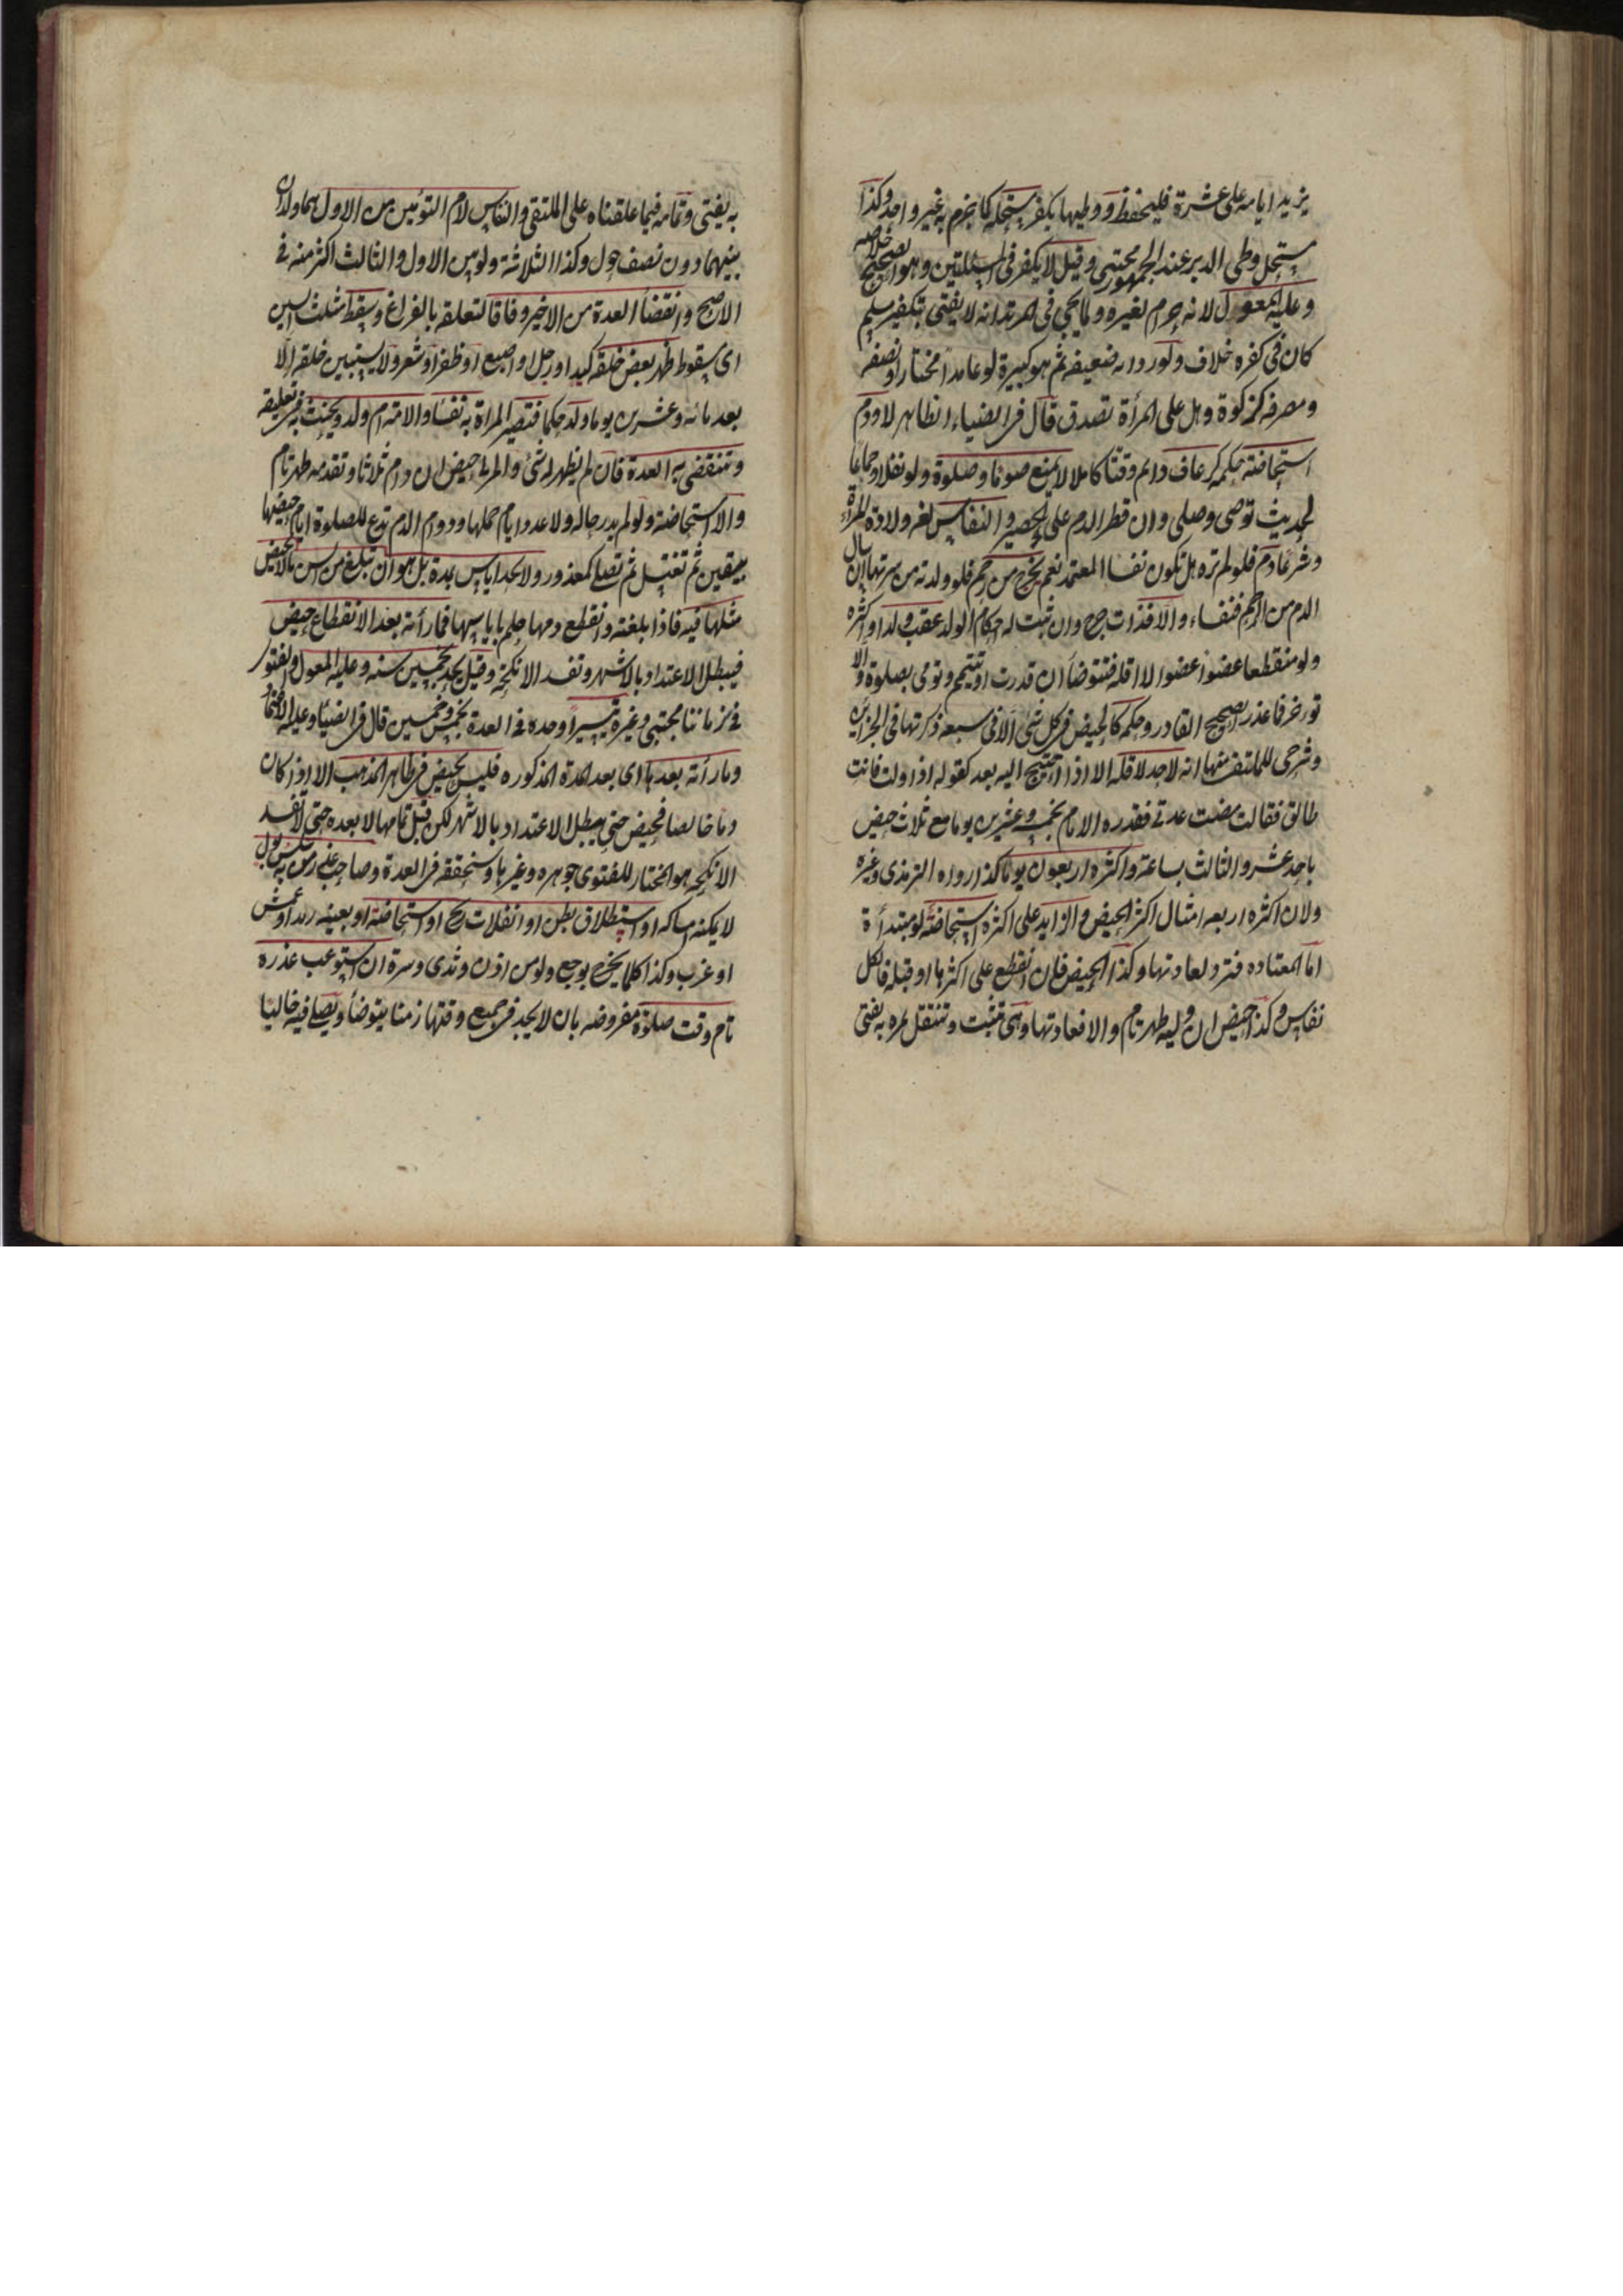 يزيد ايامه على عشرة فليحفظ ووطيها يكفر مستحله كما جزم به غير واحد وكذا
مستحل وطى الدبر عند الجمهور مجتبى وقيل لا يكفر فى المسئلتين وهو الصحيح خلاصه
وعليه المعول لانه حرام لغيره ولما يجى فى المرتد انه لا يفتى بتكفير مسلم
كان فى كفره خلاف ولو رواية ضعيفه ثم هو كبيرة لو عامدا مختارا ونصفه
ومصرفه كزكوة وهل على المرأة تصدق قال فى الضياء الظاهر لا ودم
استحاضة حكمه كرعاف دائم وقتا كاملا لا يمنع صوما وصلوة ولو نفلا وجماعا
لحديث توضى وصلى وان قطر الدم على الحصير والنفاس لغة ولادة المرأة
وشرعا دم فلو لم تره هل تكون نفسا المعتمد نعم يخرج من رحم فلو ولدته من سرتها ان سال
الدم من الرحم فنفساء والا فذات جرح وان ثبت له احكام الولد عقب ولد او اكثره
ولو متقطعا عضوا عضوا لا اقله فتتوضأ ان قدرت او تتيمم وتومى بصلوة ولا
تؤخر فما عذر الصحيح القادر وحكمه كالحيض فى كل شئ الا فى سبعه ذكرتها فى الخزائن
وشرحى للملتقى منها انه لا حد لاقله الا اذا احتيج اليه بعد كقوله اذا ولدت فانت
طالق فقالت مضت عدتى فقدره الامام بخمسه وعشرين يوما مع ثلاث حيض
باحد عشر والثالث بساعة واكثره اربعون يوما كذا رواه الترمذى وغيره
ولان اكثره اربعه امثال اكثر الحيض والزايد على اكثره استحاضة لو مبتدأة
اما المعتاده فترد لعادتها وكذا الحيض فان انقطع على اكثرها او قبله فالكل
نفاس وكذا حيض ان وليه طهر تام والا فعادتها وهى تثبت وتنتقل بمره به يفتى
به يفتى وتمامه فيما علقناه على الملتقى والنفاس لام التوئمين من الاول هما ولدان
بينهما دون نصف حول وكذا الثلاثة ولو بين الاول والثالث اكثر منه فى
الاصح وانقضأ العدة من الاخير وفاقا لتعلقه بالفراغ وسقط مثلث السين
اى سقوط ظهر بعض خلقه كيد او رجل او اصبع او ظفر او شعر ولا يستبين خلقه الا
بعد مائه وعشرين يوما ولد حكما فتصير المراة به نفسا والامة ام ولد ويحنث به فى تعليقه
وتنقضى به العدة فان لم يظهر له شئ والمرئى حيض ان دام ثلاثا وتقدمه طهر تام
والا استحاضة ولو لم يدر حاله ولا عدد ايام حملها ودوام الدم تدع للصلوة ايام حيضها
بيقين ثم تغتسل ثم تصلى كمعذور ولا يحد اياس بمدة بل هو ان تبلغ من السن ما لا تحيض
مثلها فيه فاذا بلغته وانقطع دمها حكم باياسها فما رأته بعد الانقطاع حيض
فيبطل الاعتداد بالاشهر وتفسد الانكحة وقيل يحد بخمسين سنه وعليه المعول والفتوى
فى زماننا مجتبى وغيره تيسيرا وحده فى العدة بخمس وخمسين قال فى الضيأ وعليه الاعتماد
وما رأته بعدها اى بعد المدة المذكوره فليس بحيض فى ظاهر المذهب الا اذا كان
دما خالصا فحيض حتى يبطل الاعتداد بالاشهر لكن قبل تمامها لا بعده حتى لا تفسد
الانكحه هو المختار للفتوى جوهره وغيرها وسنحققه فى العدة وصاحب عذر من به سلس بول
لا يمكنه امساكه او استطلاق بطن او انفلات ريح او استحاضة او بعينه رمد او عمش
او غرب وكذا كلما يخرج بوجع ولو من اذن وثدى وسرة ان استوعب عذره
تام وقت صلوة مفروضه بان لا يجد فى جميع وقتها زمنا يتوضأ ويصلى فيه خاليا